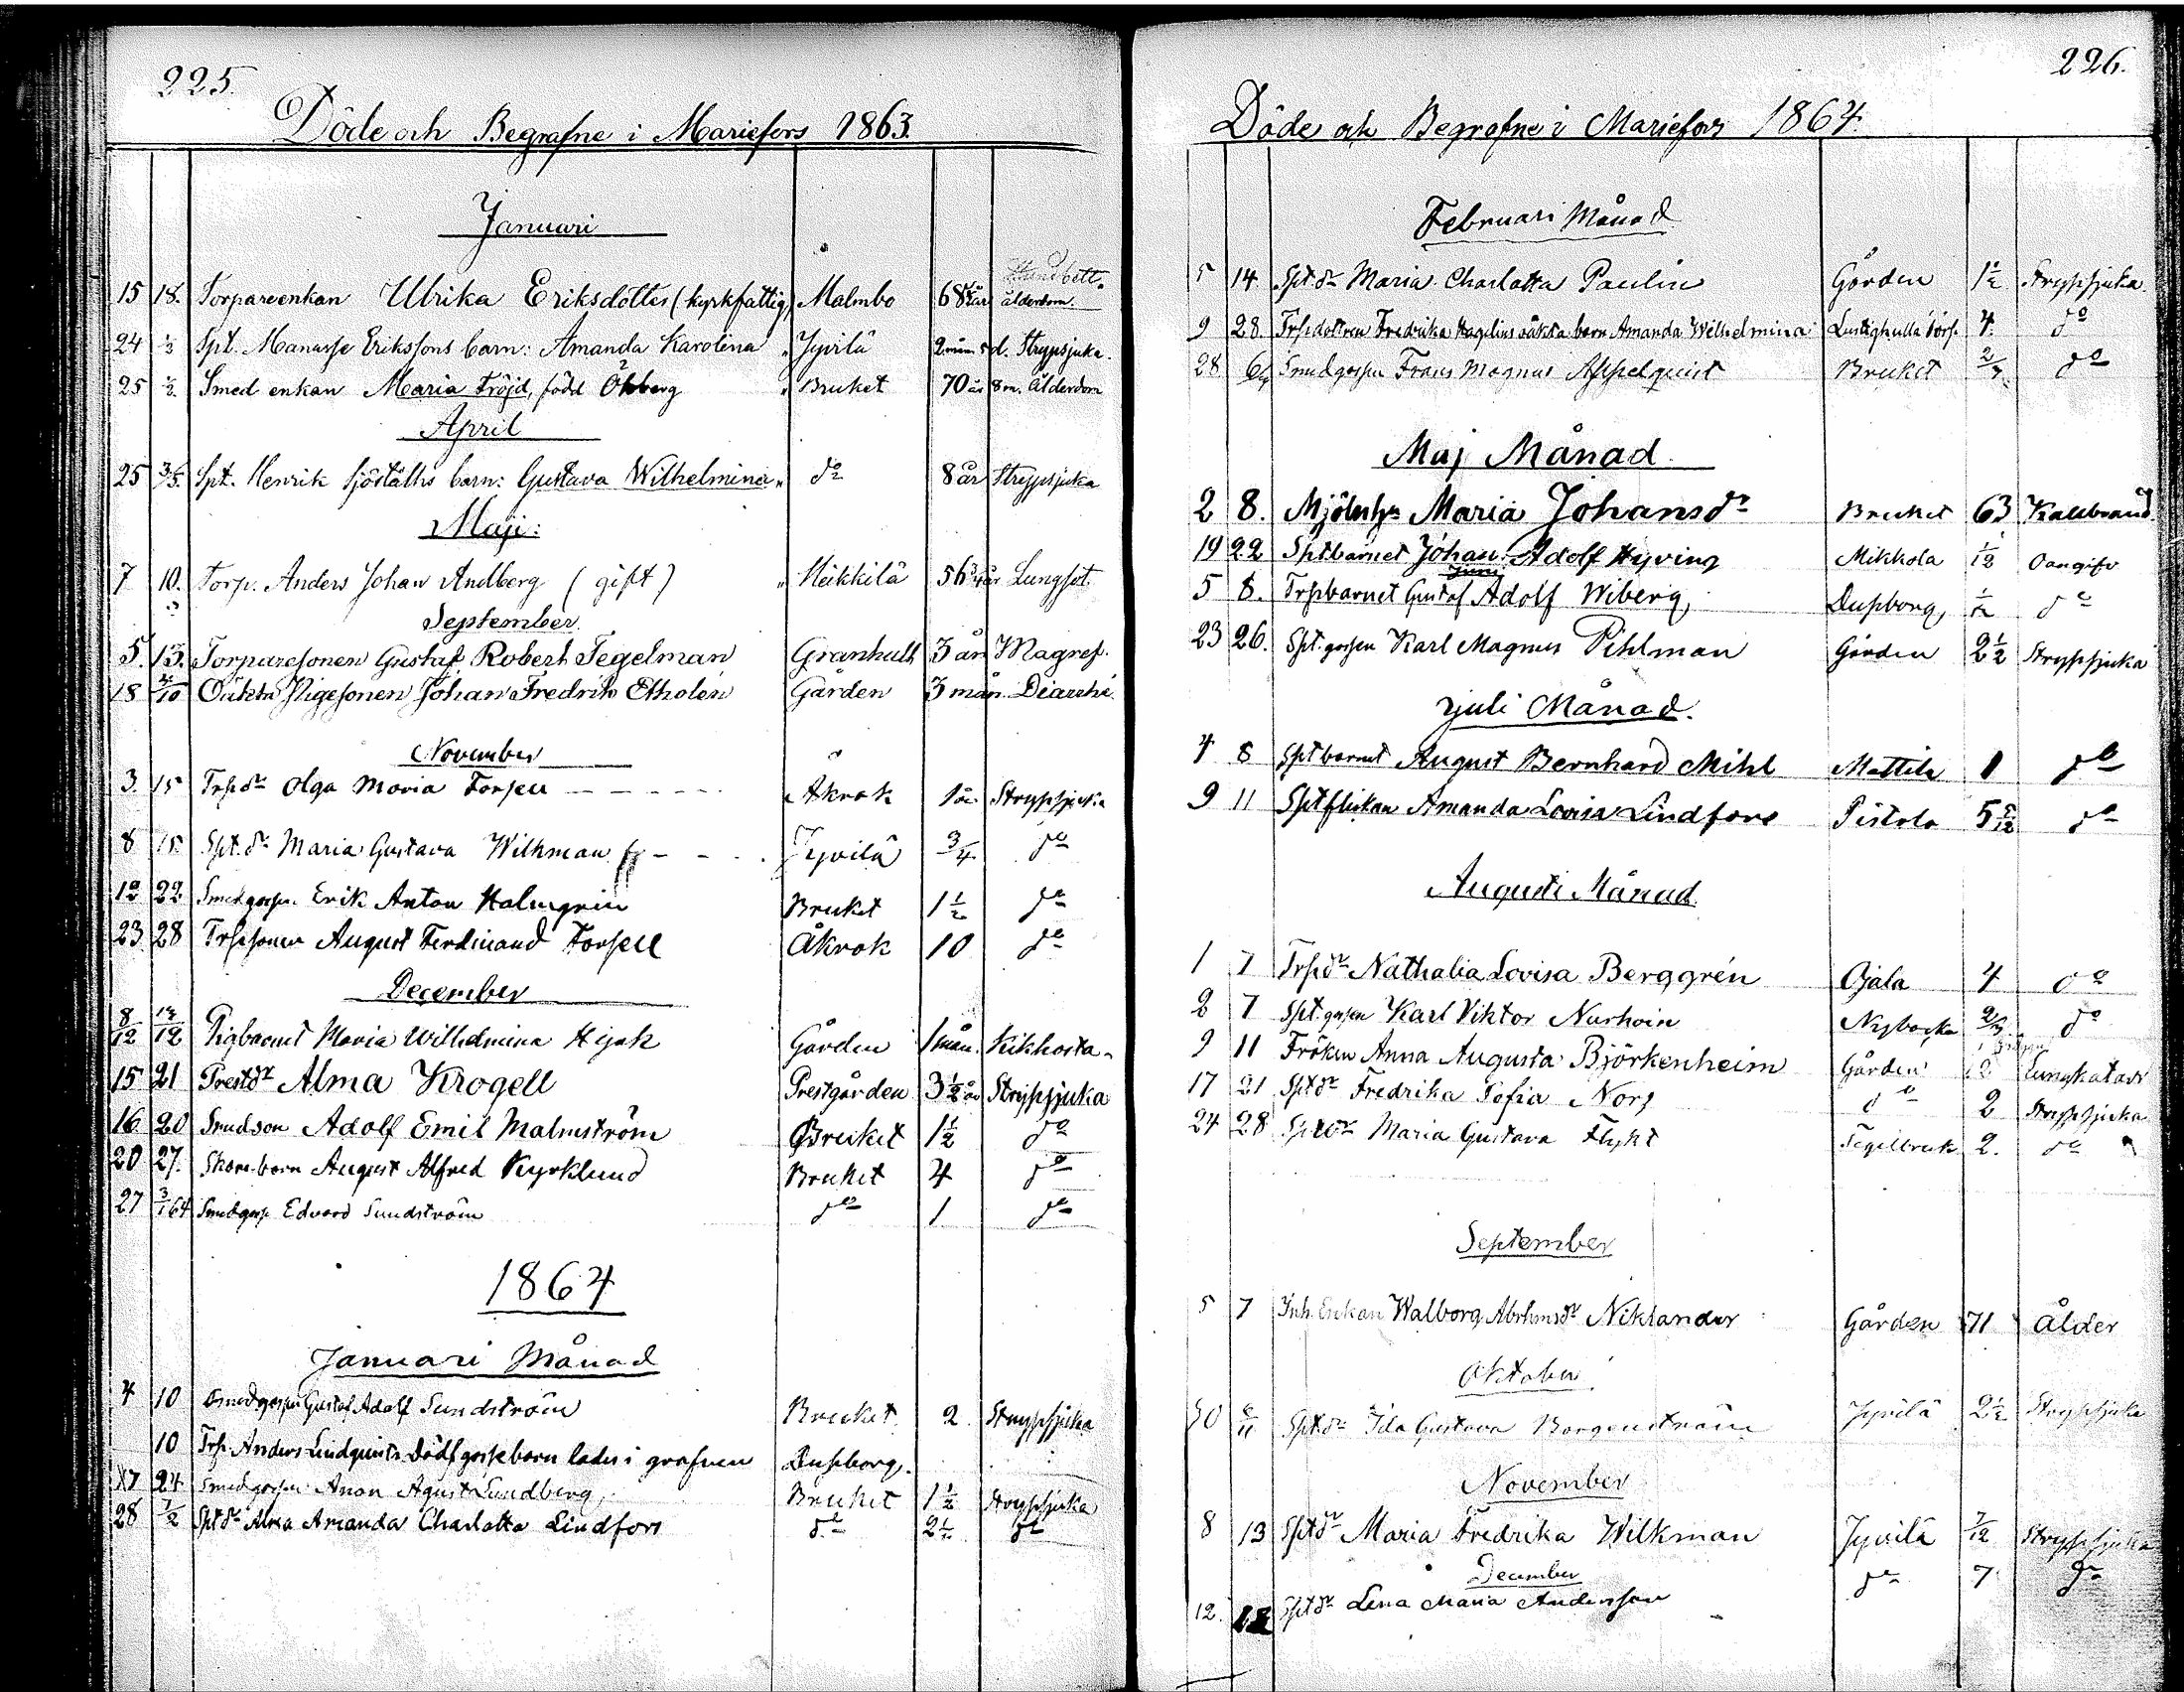 225.
Döde och Begrafne i Mariefors 1863.
Januari
15 18. Torpareenkan Ulrika Eriksdotter (kyrkfattig) Malmbo 68 år ålderdom.
24 1/3 Spt. Manasse Erikssons barn: Amanda Karolina " Jyvilä 2 mån 5 d. Strypsjuka.
25 1/2. Smed enkan Maria Fröjd, född Öhberg " Bruket 70 år 8 m. Ålderdom
April
25 3/5. Spt. Henrik Sjöställts barn: Gustava Wilhelmina " do 8 år Strypsjuka
Maji:
7 10. Torp. Anders Johan Andberg (gift) " Heikkilä 56 3/4 år Lungsot.
September
5. 13. Torparesonen Gustaf Robert Tegelman Granhult 3 år Magref.
18 4/10 Oäkta Pigesonen Johan Fredrik Etholén Gården 3 mån. Diarrhé.
November
3. 15 Trpdr Olga Maria Forsell - - - - - Åkrok 1 år Strypsjuka
8 15. Spt.dr Maria Gustava Wilkman - - . Jyvilä 3/4 do
12 22 Smedgossen Erik Anton Holmgrén Bruket 1 1/2 do
23 28 Trpsonen August Ferdinand Forsell Åkrok 10 do
December
8/12 13/12 Pigbarnet Maria Wilhelmina Hjok Gården 1 mån. Kikhosta.
15 21 Prestdr Alma Krogell Prestgården 3 1/2 år Strypsjuka
16. 20 Smedson Adolf Emil Malmström Bruket 1 1/2 do
20 27. August Alfred Kyrklund Bruket 4 do
27 3/1 64 Smedgoss. Edvard Sundström do 1 do
1864
Januari Månad
4 10 Smedgossen Gustaf Adolf Sundström Bruket 2 Strypsjuka
10 Trp. Anders Lindqvists Dödf gossebarn lades i grafven Dusborg.
17 24 Smedgossen Anon Agust Lundberg, Bruket 1 1/2 Strypsjuka
28 7/2 Sptdr Alma Amanda Charlotta Lindfors do 2 1/2 do
226.
Döde och Begrafne i Mariefors 1864.
Februari Månad
5 14 Spt.dr Maria Charlotta Paulin Gården 1 1/2 Strypsjuka.
9 28. Trpdottren Fredrika Hagelins oäkta barn Amanda Wilhelmina Lustighulla Torp. 4. do
28. 6/4 Smedgossen Frans Magnus Appelqvist Bruket 2/3. do
Maj Månad
2 8. Maria Johansdr Bruket 63 Kallbrand
19 22 Sptbarnet Johan Adolf Hyving Mikkola 1/2 Oangifv
Juni
5 8. Trpbarnet Gustaf Adolf Wiberg, Dusborg, 1/12 do
23 26. Spt. gossen Karl Magnus Pihlman Gården 2 1/2 Strypsjuka
Juli Månad.
4 8 Sptbarnet August Bernhard Mihl Mattila 1 do
9 11 Sptflickan Amanda Lovisa Lindfors Pistola 5 5/12 do
Augusti Månad.
1 7 Trpdr Nathalia Lovisa Berggrén Ojala 4 do
2 7 Spt. gossen Karl Viktor Nurhoin Nybacka 2/3 do
9 11 Fröken Anna Augusta Björkenheim Gården 12 Lungkatarr
17 21 Sptdr Fredrika Sofia Norz do 2 Strypsjuka
24 28 Sptdr Maria Gustava Flykt Tegelbruk 2. do
September
5 7 Inh. Enkan Walborg Abrhmsdr Niklander Gården 71 Ålder
Oktober
30 6/11 Sptdr Ida Gustava Borgenström Jyvilä 2 1/2 Strypsjuka
November
8 13 Sptdr Maria Fredrika Wilkman Jyvilä 7/12 Strypsjuka
December
12. 18 Sptdr Lena Maria Andersson do 7 do